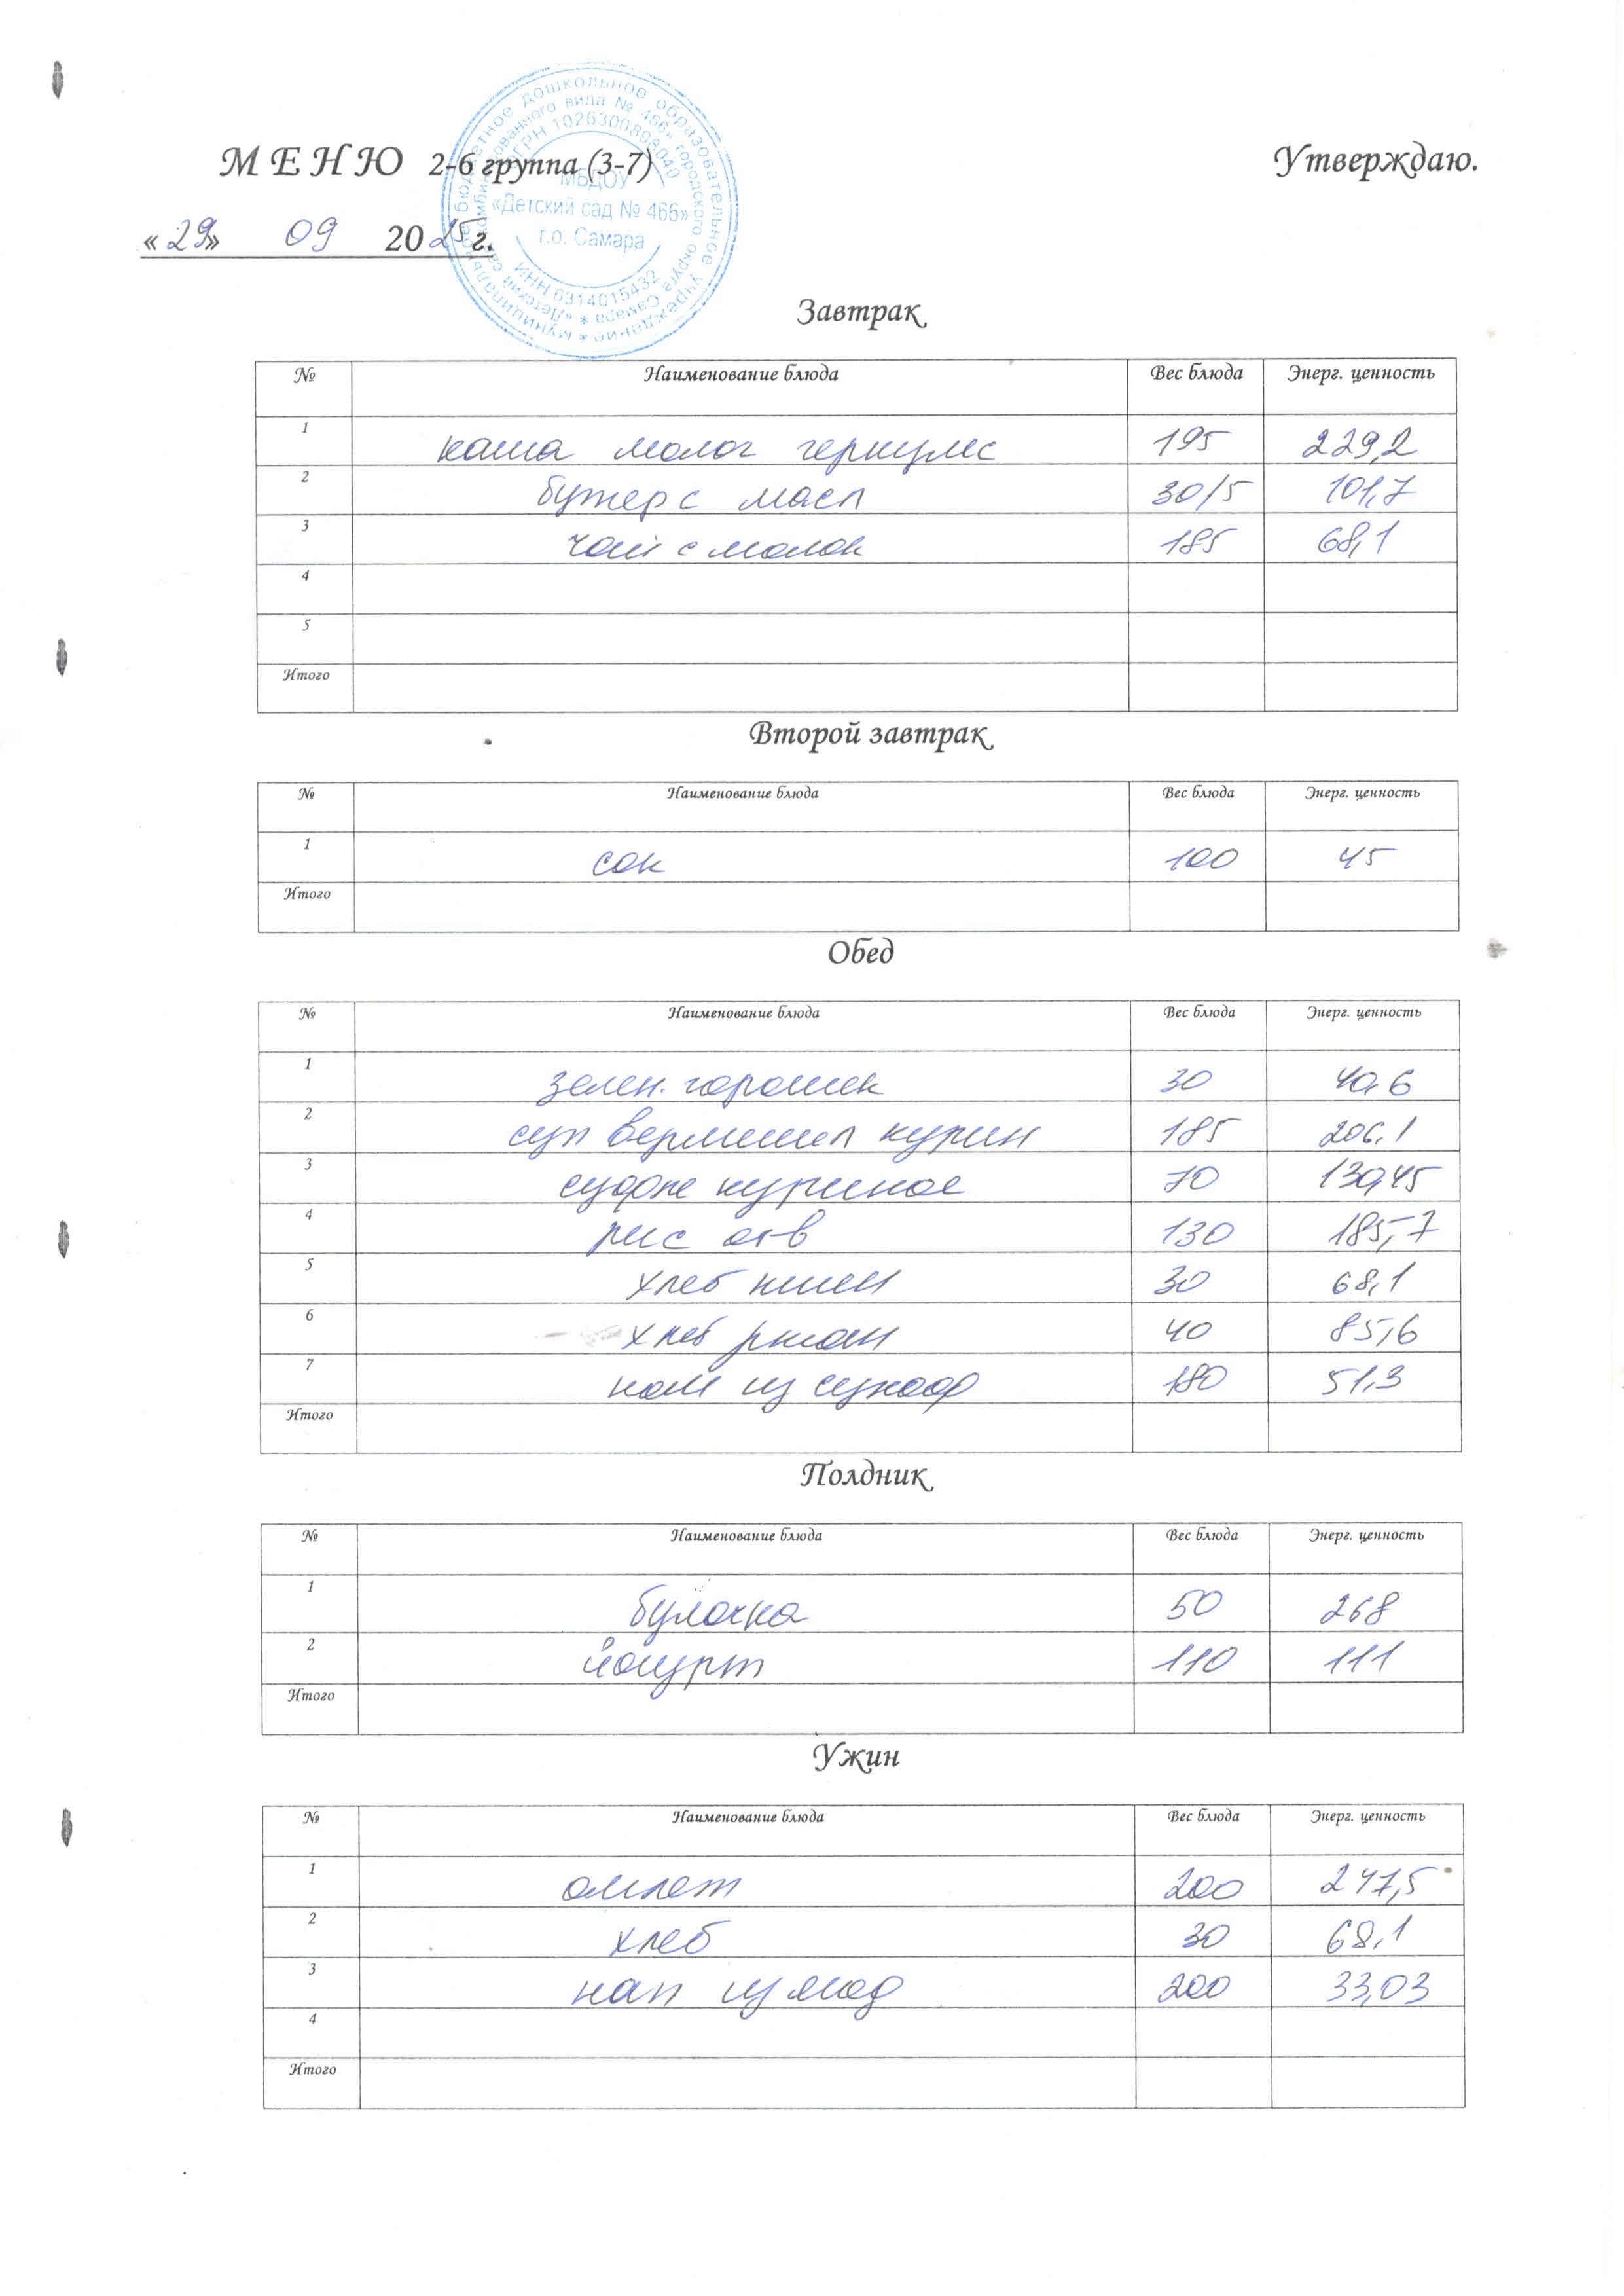 МЕНЮ 2-6 группа (3-7)
Утверждаю.
«29» 09 2025 г.
муниципальное бюджетное дошкольное образовательное учреждение
«Детский сад комбинированного вида № 466» городского округа Самара
ОГРН 1026300898040
МБДОУ
«Детский сад № 466»
г.о. Самара
ИНН 6314015432
Завтрак
№ Наименование блюда Вес блюда Энерг. ценность
1 каша молоч геркулес 195 229,2
2 бутер с масл 30/5 101,7
3 чай с молок 185 68,1
4
5
Итого
Второй завтрак
№ Наименование блюда Вес блюда Энерг. ценность
1 сок 100 45
Итого
Обед
№ Наименование блюда Вес блюда Энерг. ценность
1 зелен. горошек 30 40,6
2 суп вермишел курин 185 206,1
3 суфле куриное 70 130,45
4 рис отв 130 185,7
5 хлеб пшен 30 68,1
6 хлеб ржан 40 85,6
7 ком из сухофр 180 51,3
Итого
Полдник
№ Наименование блюда Вес блюда Энерг. ценность
1 булочка 50 268
2 йогурт 110 111
Итого
Ужин
№ Наименование блюда Вес блюда Энерг. ценность
1 омлет 200 247,5
2 хлеб 30 68,1
3 нап из 200 33,03
4
Итого